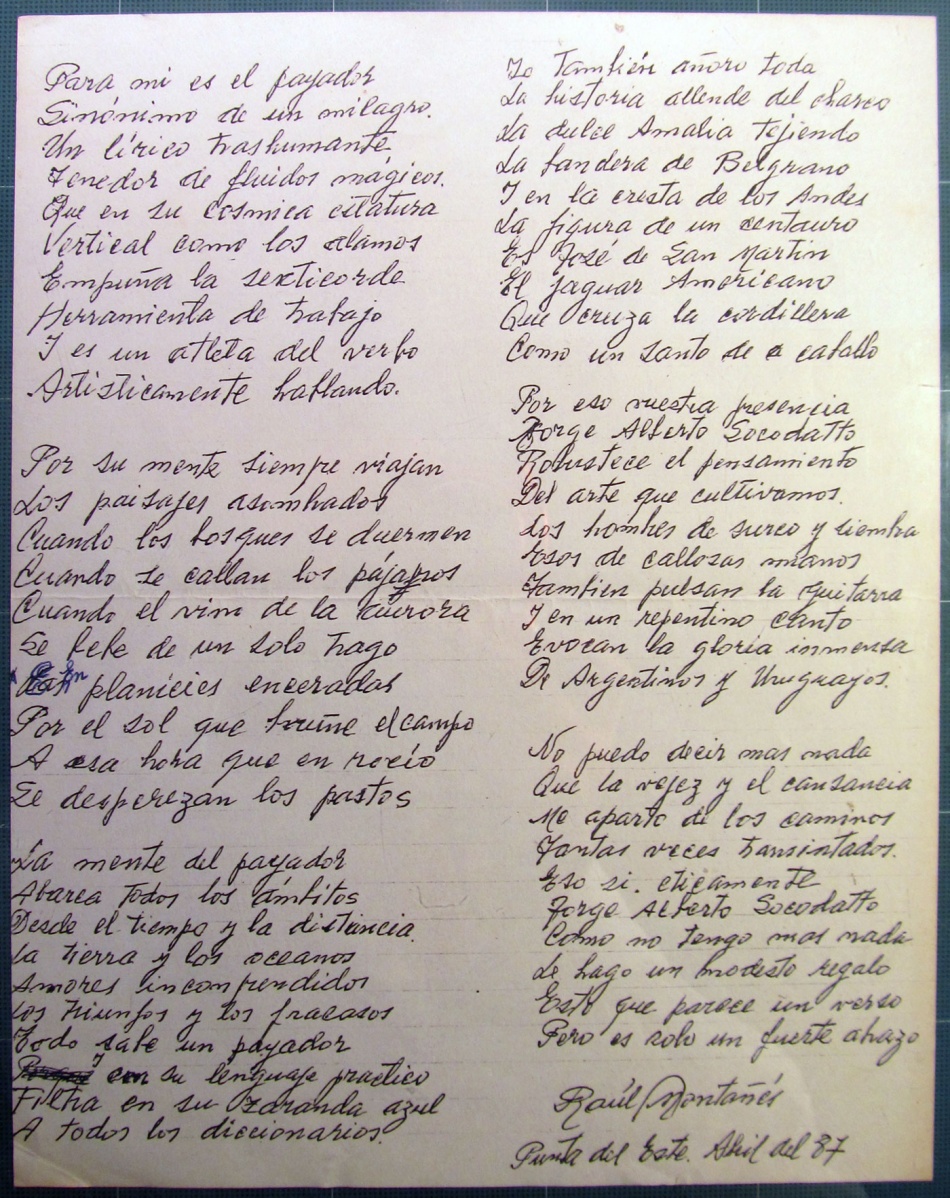 Para mi es el payador
Sinónimo de un milagro.
Un lírico trashumante
Tenedor de fluidos mágicos.
Que en su cosmica estatura
Vertical como los alamos
Empuña la sexticorde
Herramienta de trabajo
I es un atleta del verbo
Artisticamente hablando.
Por su mente siempre viajan
Los paisajes asombrados
Cuando los bosques se duermen
Cuando se callan los pájaros
Cuando el vino de la aurora
Se bebe de un solo trago
En planicies enceradas
Por el sol que bruñe el campo
A esa hora que en rocío
Se desperezan los pastos
La mente del payador
Abarca todos los ámbitos
Desde el tiempo y la distancia
La tierra y los oceanos
Amores incomprendidos
Los triunfos y los fracasos
Todo sabe un payador
y con su lenguaje practico
Filtra en su zaranda azul
A todos los diccionarios.
Yo también añoro toda
La historia allende del charco
La dulce Amalia tejiendo
La bandera de Belgrano
I en la cresta de los Andes
La figura de un centauro
Es José de San Martin
El jaguar Américano
Que cruza la cordillera
Como un santo de a caballo
Por eso vuestra presencia
Jorge Alberto Socodatto
Robustece el pensamiento
Del arte que cultivamos.
Los hombres de surco y siembra
Esos de callosas manos
Tambien pulsan la guitarra
I en un repentino canto
Evocan la gloria inmensa
De Argentinos y Uruguayos.
No puedo decir mas nada
Que la vejez y el cansancia
Me aparto de los caminos
Tantas veces transintados.
Eso si. eticamente
Jorge Alberto Socodatto
Como no tengo mas nada
Le hago un modesto regalo
Esto que parece un verso
Pero es solo un fuerte abrazo
Raúl Montañés
Punta del Este. Abril del 87